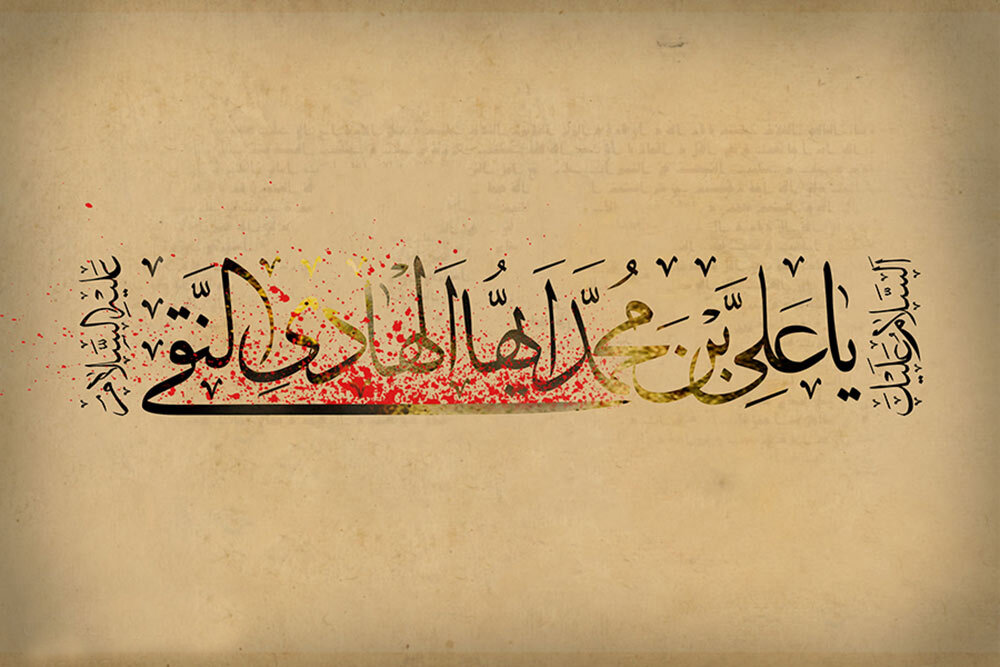 السَّلامُ عَلَيكَ
يا عَلِيَّ بْنَ مُحَمَّدٍ اَيُّهَا الْهادِى النَّقِى
عَلَيهِ السَّلامُ